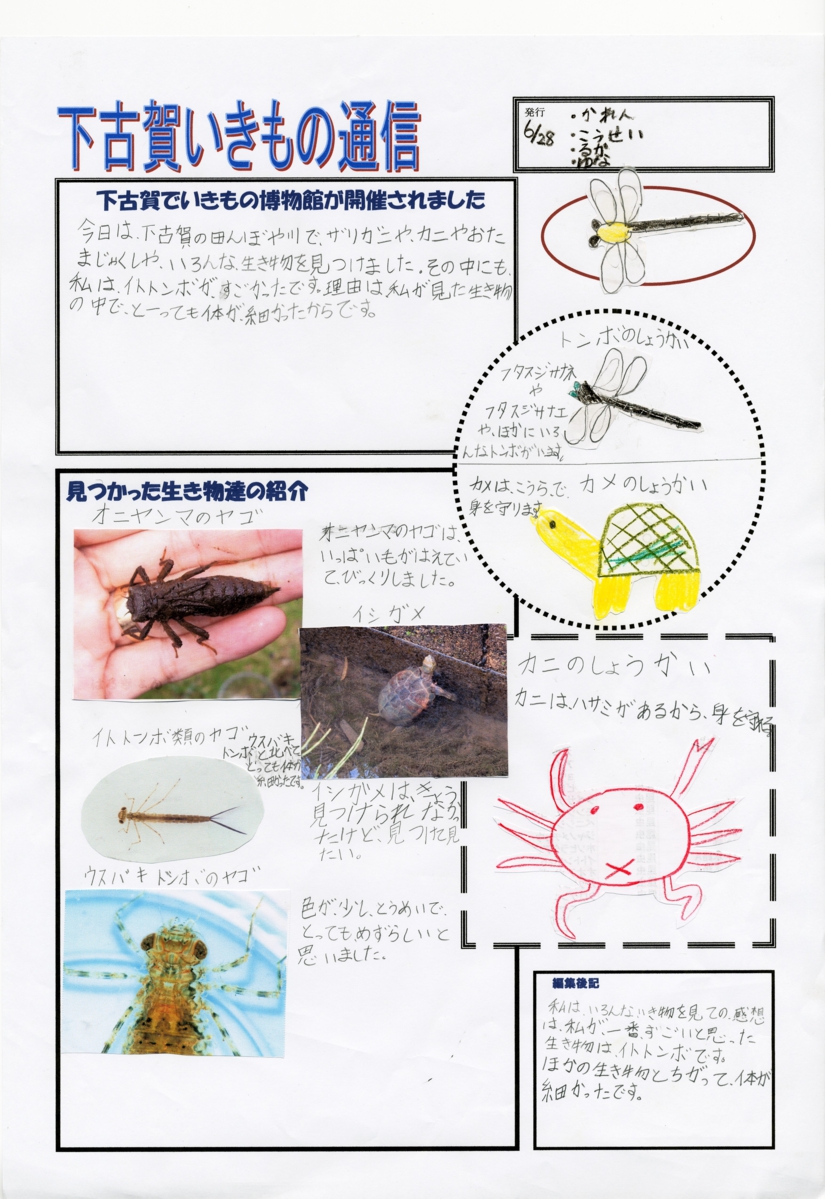 下古賀いきもの通信
発行
6/28
・かれん
・こうせい
・るか
・ゆな
下古賀でいきもの博物館が開催されました
今日は、下古賀の田んぼや川で、ザリガニや、カニやおた
まじゃくしや、いろんな、生き物を見つけました。その中にも、
私は、イトトンボが、すごかったです。理由は、私が見た生き物
の中で、とーっても体が、細かったからです。
トンボのしょうかい
フタスジサナエ
や
フタスジサナエ
や、ほかにいろ
んなトンボがいます。
カメのしょうかい
カメは、こうら、で、
身を守ります
見つかった生き物達の紹介
オニヤンマのヤゴ
オニヤンマのヤゴは、
いっぱいもがはえてい
て、びっくりしました。
イシガメ
イシガメは、きょう
見つけられなかっ
たけど、見つけて見
たい。
イトトンボ類のヤゴ
ウスバキ
トンボと比べて、
とっても体が
細かったです。
ウスバキトンボのヤゴ
色が、少し、とうめいで、
とってもめずらしいと
思いました。
カニのしょうかい
カニは、ハサミがあるから、身を守れる。
編集後記
私は、いろんないき物を見ての、感想
は、私が、一番、すごいと思った
生き物は、イトトンボです。
ほかの生き物とちがって、体が
細かったです。